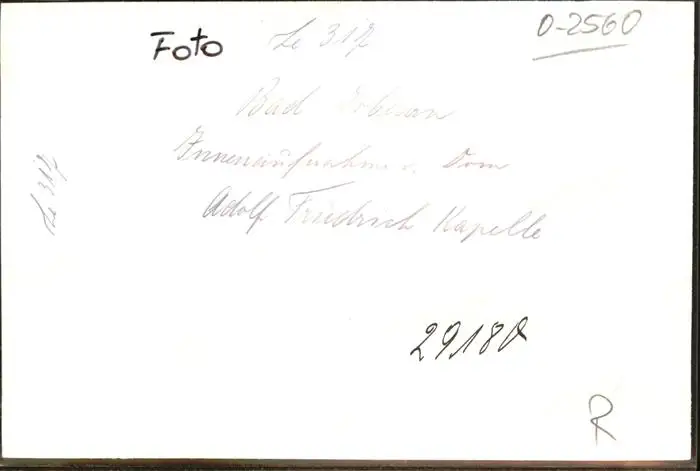 Foto
Le 317
0-2560
Bad Doberan
Innenaufnahme v. Dom
Adolf Friedrich Kapelle
Le 317
29180
R